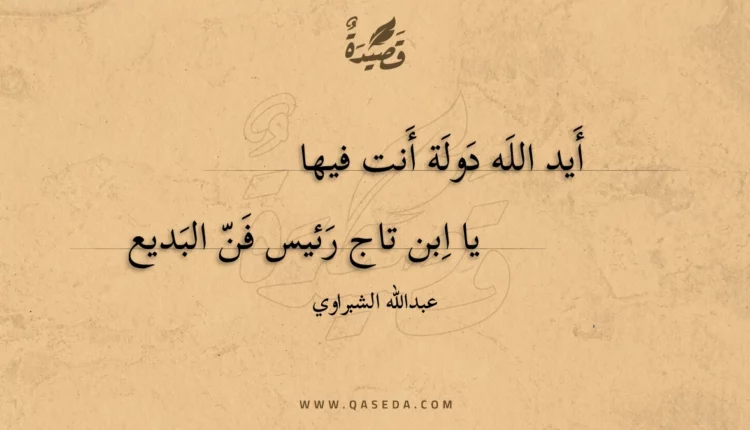 قَصِيْدَةٌ
أَيد اللَه دَولَة أَنت فيها
يا اِبن تاج رَئيس فَنّ البَديع
عبدالله الشبراوي
WWW.QASEDA.COM